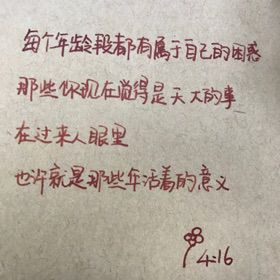 每个年龄段都有属于自己的困惑
那些你现在觉得是天大的事
在过来人眼里
也许就是那些年活着的意义
4.16